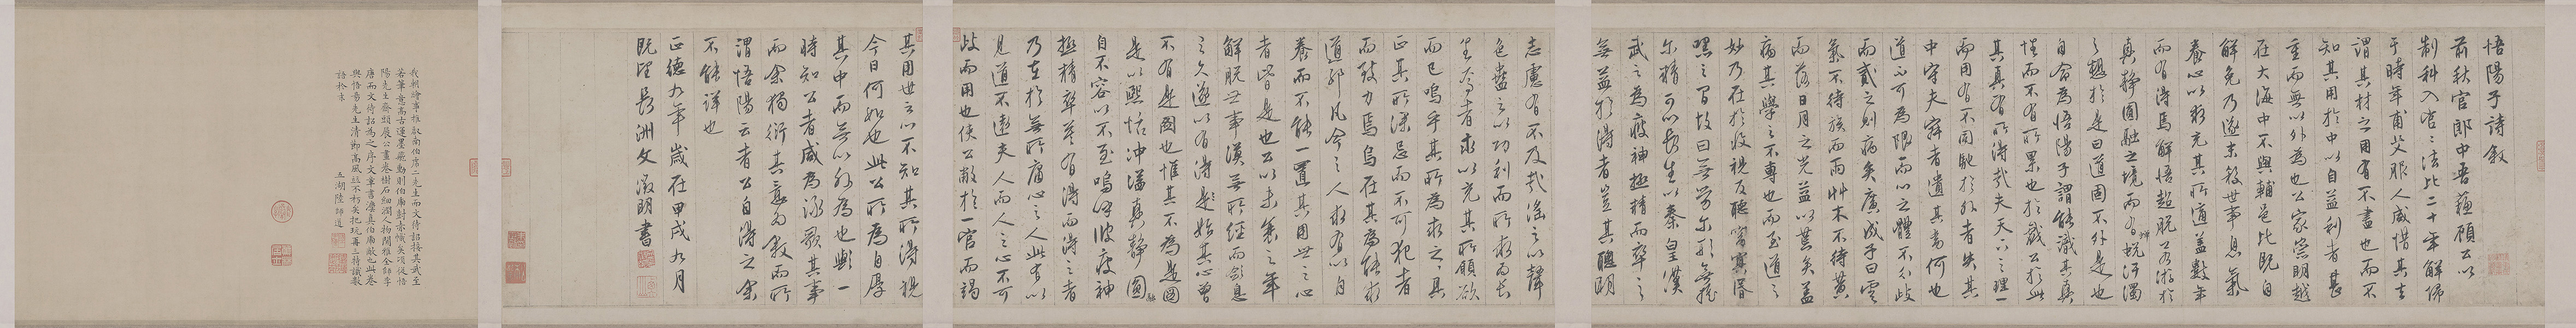 悟陽子詩敘
前秋官郎中吾蘓顧公以
制科入官之法比二十年解歸
于時年甫艾服人咸惜其去
謂其材之用有不盡也而不
知其用於中以自益利者甚
重而無以外為也公家崇明越
在大海中不與輔邑比既自
解免乃遂末殺世事息氣
養心以求充其所道蓋數年
而有得焉解悟超脫若游於
真靜圓融之境而有蛻汙濁
之趣於是曰道固不外是也
自命為悟陽子謂能識其真
性而不有所累也於戲公於此
其真有所得哉夫天下之理一
而用有不同馳於外者失其
中守夫寂者遺其當何也
道不可為限而心之體不以歧
而貳之則病矣廣成子曰雲
氣不待族而雨艸木不待黃
而落日月之光益以荒矣蓋
病其學之不專也而至道之
妙乃在於收視反聽窅冥昏
嘿之間故曰無勞尔形無搖
尔精可以長生以秦皇漢
武之為疲神極精而卒之
無益於得者豈其聰明
志慮有不及哉淫之以聲
色盡之以功利而所求為長
生者求以充其所願欲
而已嗚乎其所為求之
正其所深忌而不可犯者
而致力焉烏在其為能求
道邪凡今之人求有以自
養而不能一置其用世之心
者皆是也公以未衰之年
解脫世事漠無所經而斂息
之久遂以有得是始其心曾
不有是圖也惟其不為是圖
是以熙恬沖瀜真靜圓
自不容以不至嗚呼彼疲神
極精卒莫有得而得之者
乃在於無所庸心之人此有以
見道不遠夫人而人之心不可
歧而用也使公敝於一官而竭
其用世之心不知其所得視
今日何如也此公所為自厚
其中而無以外為也歟一
時知公者咸為詠歌其事
而余獨衍其意為敘而所
謂悟陽云者公自得之余
不能詳也
正德九年歲在甲戌九月
既望長洲文徵明書
我朝繪事推啟南伯虎二先生而文待詔接其武至
若筆意高古運墨飛動則伯虎尌赤幟矣頃從悟
陽先生齋頭展公畫卷樹石細潤人物閒雅全師李
唐而文待詔為之序文章書灋真伯虎敵也此卷
與悟陽先生清節高風並不朽矣把玩再三特識數
語於末
五湖陸師道